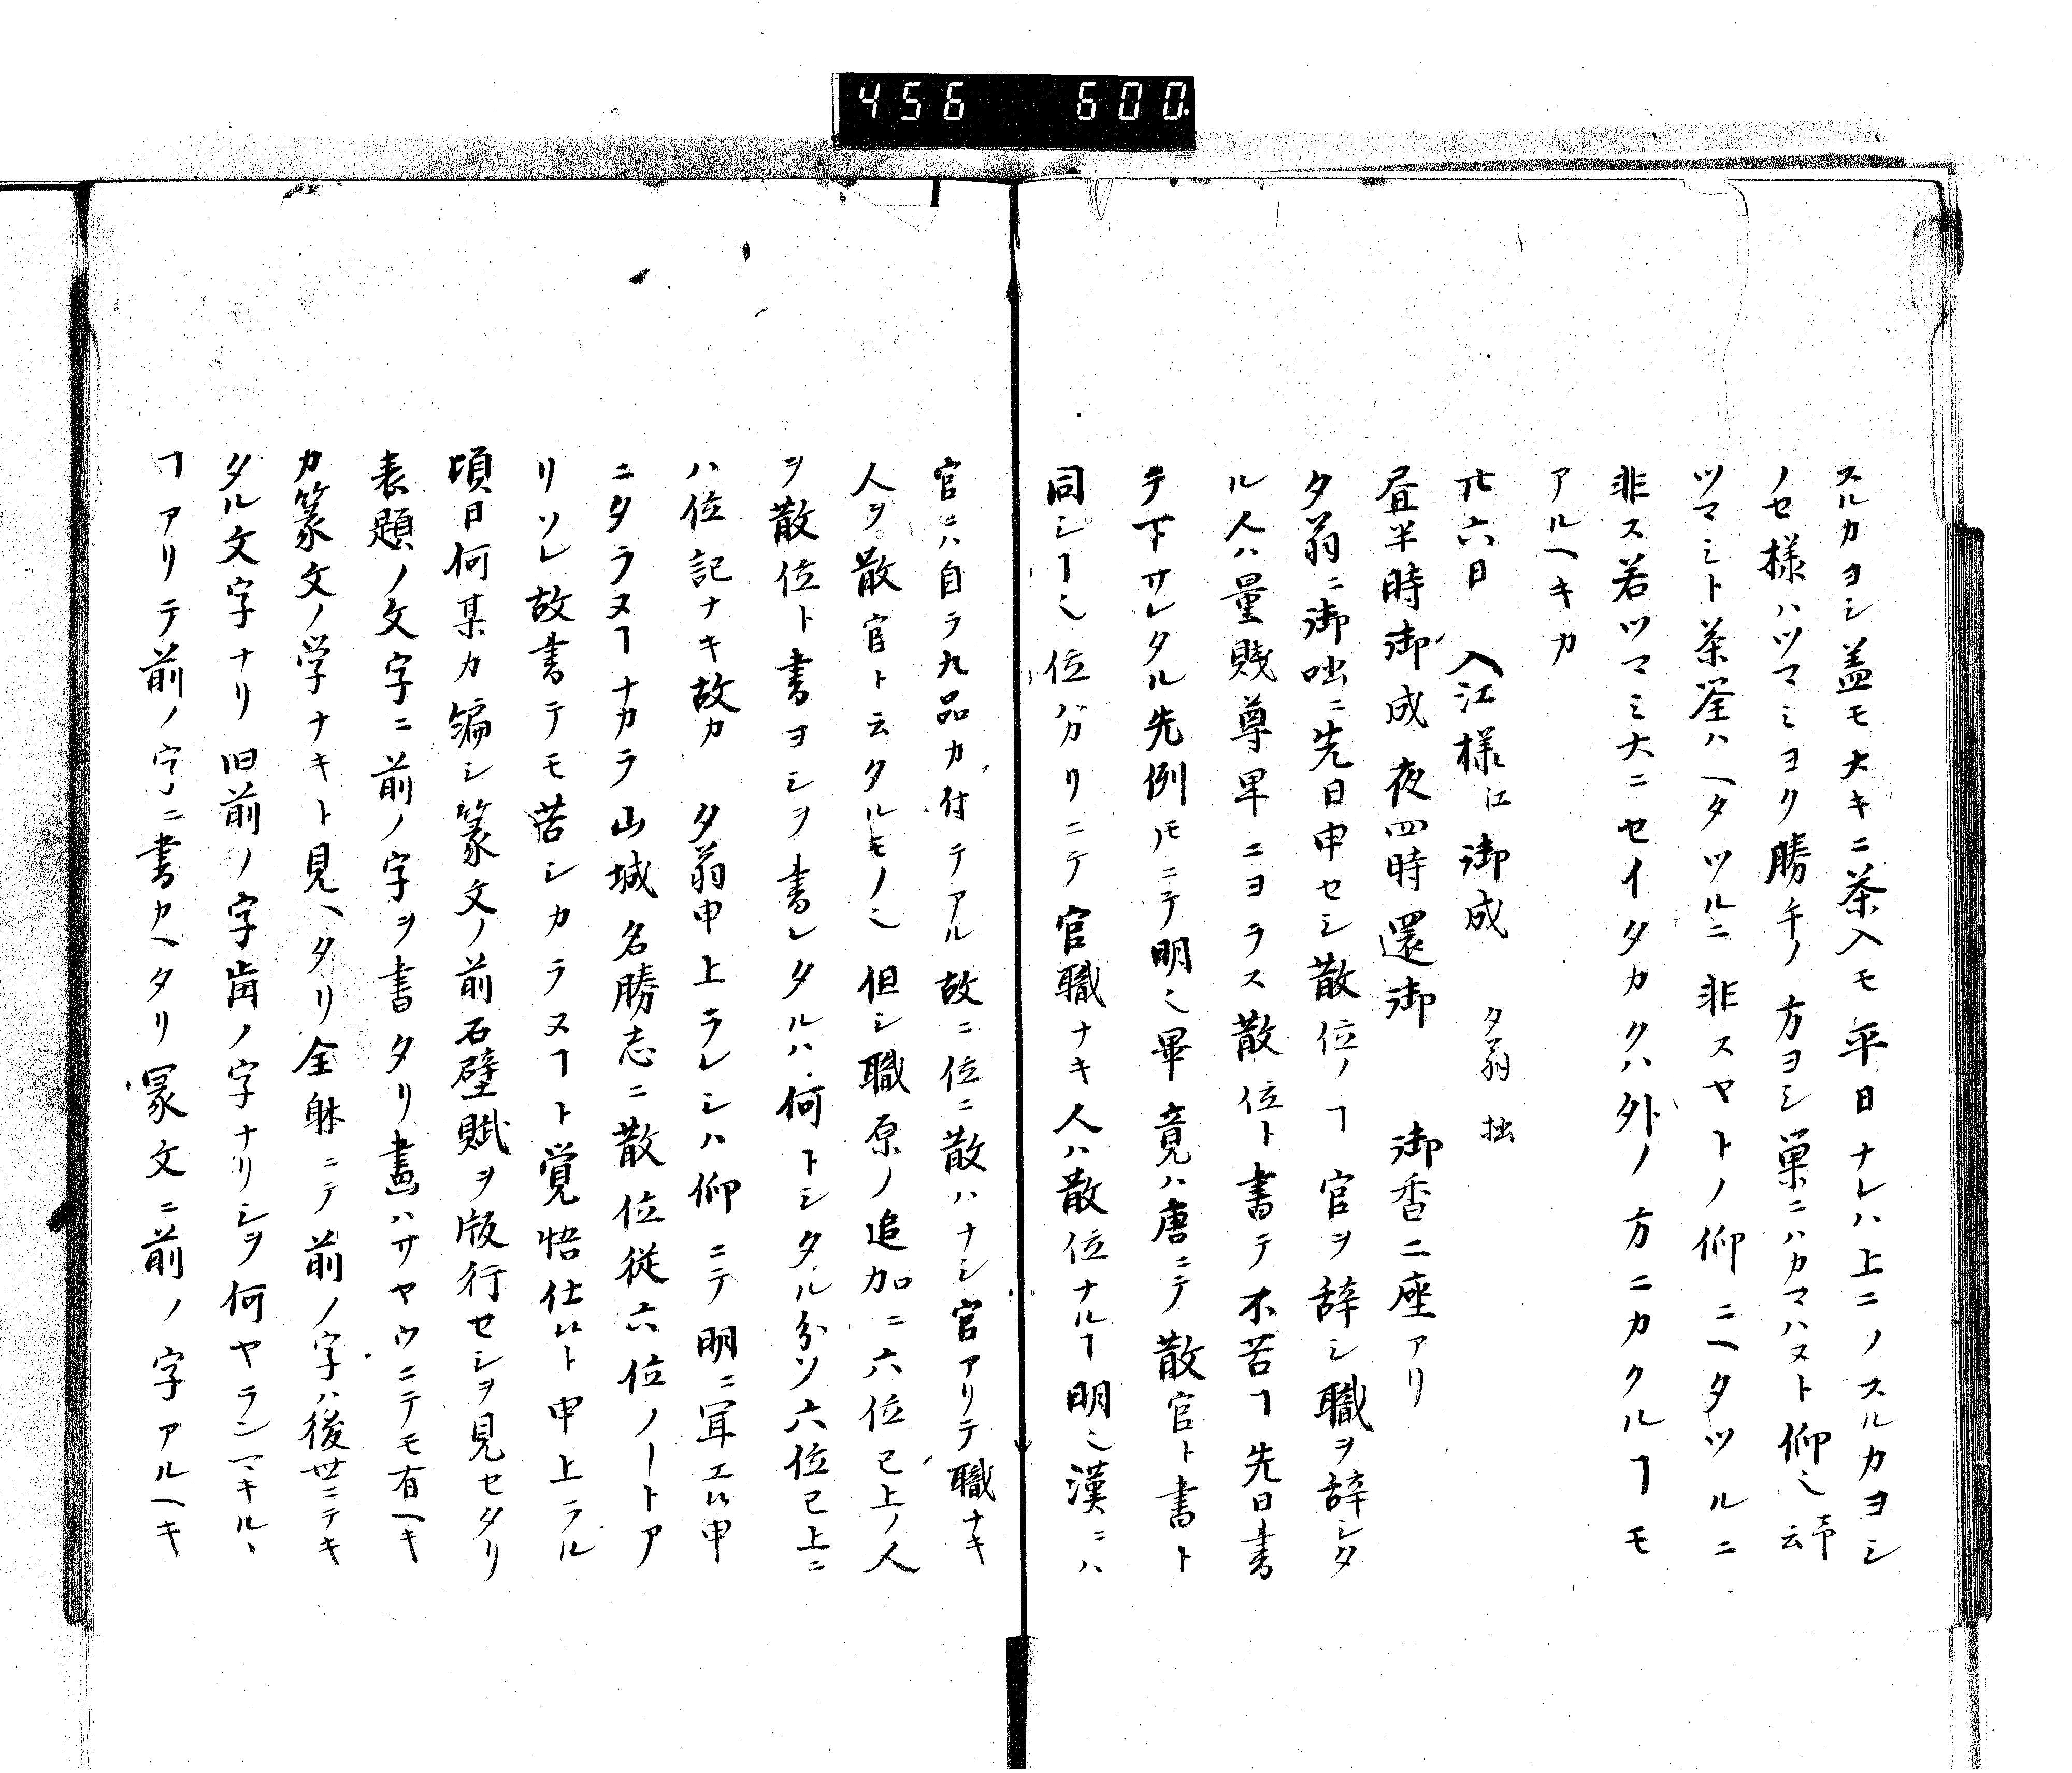 456 600
スルカヨシ盖モ大キニ茶入モ平日ナレハ上ニノスルカヨシ
ノセ様ハツマミヨク勝手ノ方ヨシ巣ニハカマハスト仰ミ云
ツマミト茶筌ハヘタツルニ非スヤトノ仰ニヘタツルニ
非ス若ツマミ大ニセイタカクハ外ノ方ニカクルヿモ
アルヘキカ
廿六日 入江様江御成 夕翁 拙
昼半時御成夜四時還御 御香二座アリ
夕翁ニ御咄ニ先日申セシ散位ノヿ官ヲ辞シ職ヲ辞シタ
ル人ハ量賎尊卑ニヨラス散位ト書テ不苦ヿ先日書
テ下サレタル先例ノモニテ明ミ畢竟ハ唐ニテ散官ト書ト
同シヿミ位ハカリニテ官職ナキ人ハ散位ナルヿ明ミ漢ニハ
官ニハ自ラ九品カ付テアル故ニ位ニ散ハナシ官アリテ職ナキ
人ヲ散官ト云タルモノミ但シ職原ノ追加ニ六位已上ノ人
ヲ散位ト書ヨシヲ書レタルハ何トシタル分ソ六位已上ニ
ハ位記ナキ故カ 夕翁申上ラレシハ仰ニテ明ニ申
ニタラヌヿナカラ山城名勝志ニ散位従六位ノートア
リソレ故書テモ苦シカラスヿト覚悟仕ト申上ラル
頃日何某カ編シ篆文ノ前石壁賦ヲ版行セシヲ見セタリ
表題ノ文字ニ前ノ字ヲ書タリ畫ハサヤウニテモ有ヘキ
カ篆文ノ学ナキト見ヘタリ全躰ニテ前ノ字ハ後世ニテキ
タル文字ナリ旧前ノ字歯ノ字ナリシヲ何ヤランマキルヽ
ヿアリテ前ノ字ニ書カヘタリ篆文ニ前ノ字アルヘキ